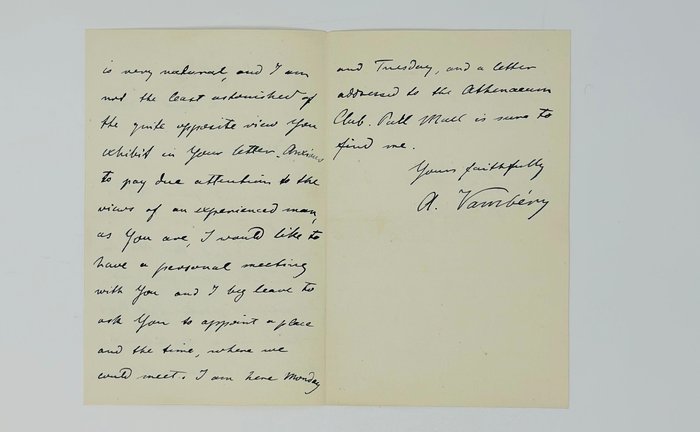 is very natural, and I am
not the least astonished of
the quite opposite view You
exhibit in Your letter. Anxious
to pay due attention to the
views of an experienced man,
as You are, I would like to
have a personal meeting
with You and I beg leave to
ask You to appoint a place
and the time, where we
could meet. I am here Monday
and Tuesday, and a letter
addressed to the Athenaeum
Club. Pall Mall is sure to
find me.
Yours faithfully
A. Vambéry